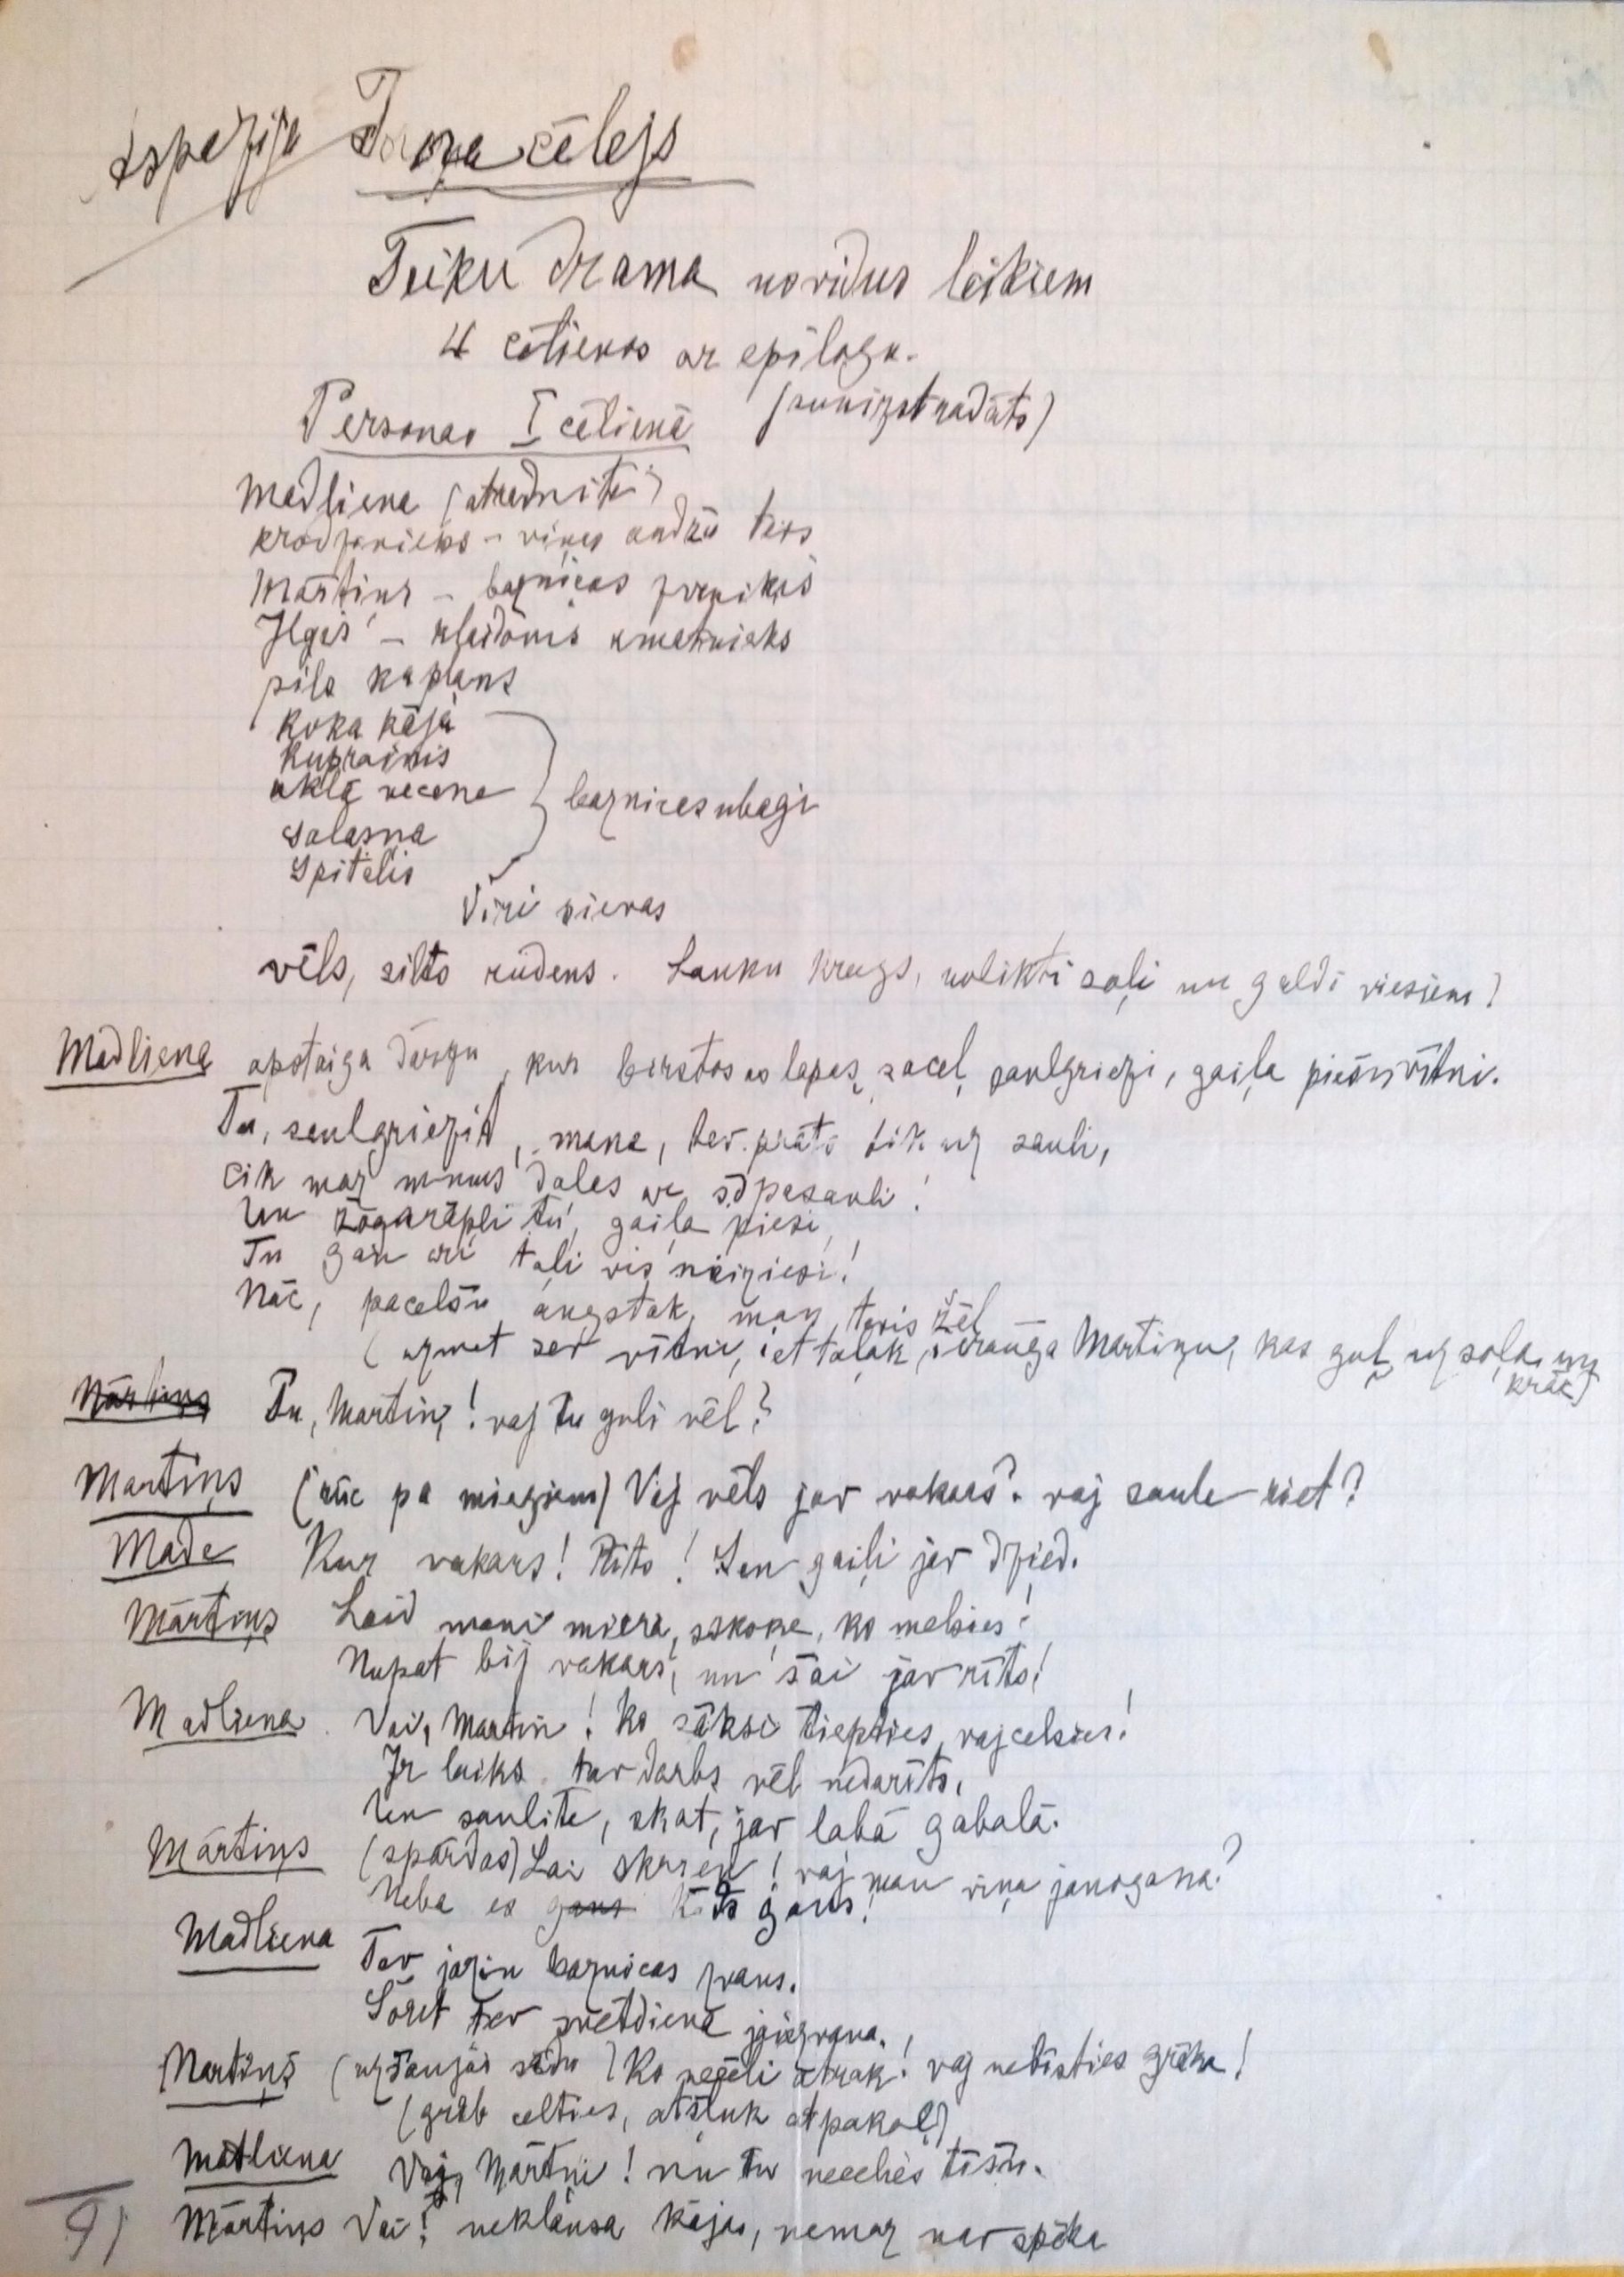 Aspazija Torņa cēlejs
Teiku drama no vidus laikiem
4 cēlienos ar epilogu.
(jaunizstrādāts)
Personas I cēlienā
Madliena (atraitnīte)
krodzenieks – viņas audžu tēvs
Mārtiņš – baznīcas zvaniķis
Ilģis – klaidonis amatnieks
pils kaplans
Koka kāja
Kuprainis
aklā vecene
Salasņa
Spitālis
baznīcas ubagi
Vīri sievas
vēls, silts rudens. Lauku krogs, nolikti soli un galdi viesiem)
Madliena apstaigā dārzu, kur birstošas lapas, saceļ saulgriezi, gaiļa piesi vītni.
Tu, saulgriezīt, mana, tev prāts tik uz sauli,
Cik maz mums daļas ar šo pasauli!
Un gaiļa piesi,
Tu gan arī tāli vis neiziesi!
Nāc, pacelšu augstāk, man tevis žēl
(uzmet sev vītni, iet tālāk, ierauga Mārtiņu, kas guļ uz sola un krāc)
Mārtiņš Tu, Mārtiņ! vaj tu guli vēl?
Mārtiņš (rūc pa miegiem) Vaj vēls jav vakars? vaj saule riet?
Made Kur vakars! Rīts! Sen gaiļi jav dzied.
Mārtiņš Laid mani mierā, skuķe, ko melsies!
Nupat bij vakars, un šai jav rīts!
Madliena Vai, Mārtiņ! Ko sāksi tiepties, vaj celsies!
Ir laiks, tav darbs vēl nedarīts,
Un saulīte, skat, jav labā gabalā.
Mārtiņš (spārdas) Lai skrien! vaj man viņa jānogana?
Neba es gans kāds gans!
Madliena Tev jāzin baznīcas zvans.
Šorīt tev svētdiena jāiezvana.
Mārtiņš (uztrūkjās sēdu) Ko necēli ātrāk! vaj netīsties grēka!
(grib celties, atšļūk atpakaļ)
Madliena Vaj, Mārtiņ! nu tu neceļies tīšu.
Mārtiņš Vai! neklausa kājas, nemaz nav spēka